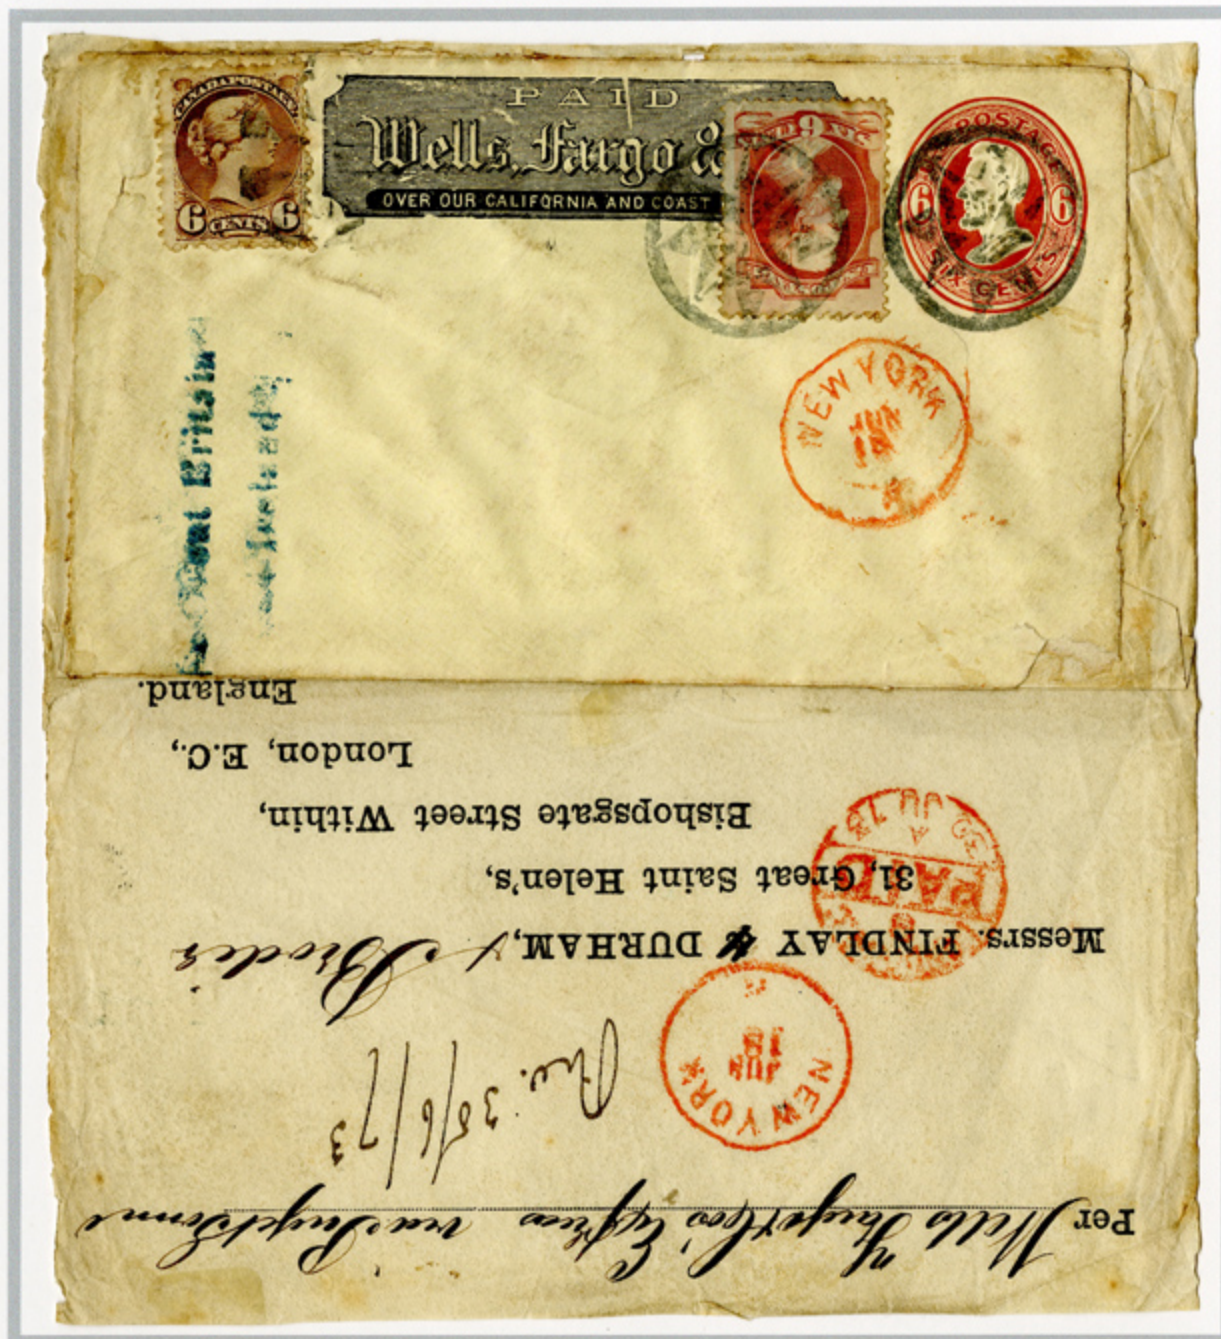 CANADA POSTAGE
6 CENTS 6
PAID
Wells, Fargo &
OVER OUR CALIFORNIA AND COAST
6
POSTAGE
6 6
SIX CENTS
NEW YORK
JUN
18
Great Britain
Ireland
Per Wells Fargo & Co's Express via Puget Sound
Rec. 30/6/73
NEW YORK
JUN
18
Messrs. FINDLAY & DURHAM, & Brodie
31, Great Saint Helen's,
Bishopsgate Street Within,
London, E.C.,
England.
PAID
A
30 JU 73